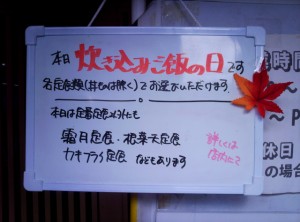 本日 炊き込みご飯の日です
各定食類(丼ものは除く)でお選びいただけます。
本日は定番定食以外にも
霜月定食・根菜天定食
カキフライ定食 などもあります
詳しくは
店内にて
時間
休日
の場合